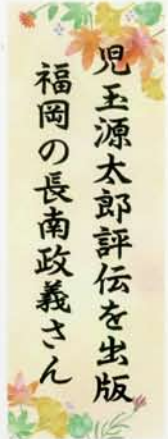 児玉源太郎評伝を出版
福岡の長南政義さん